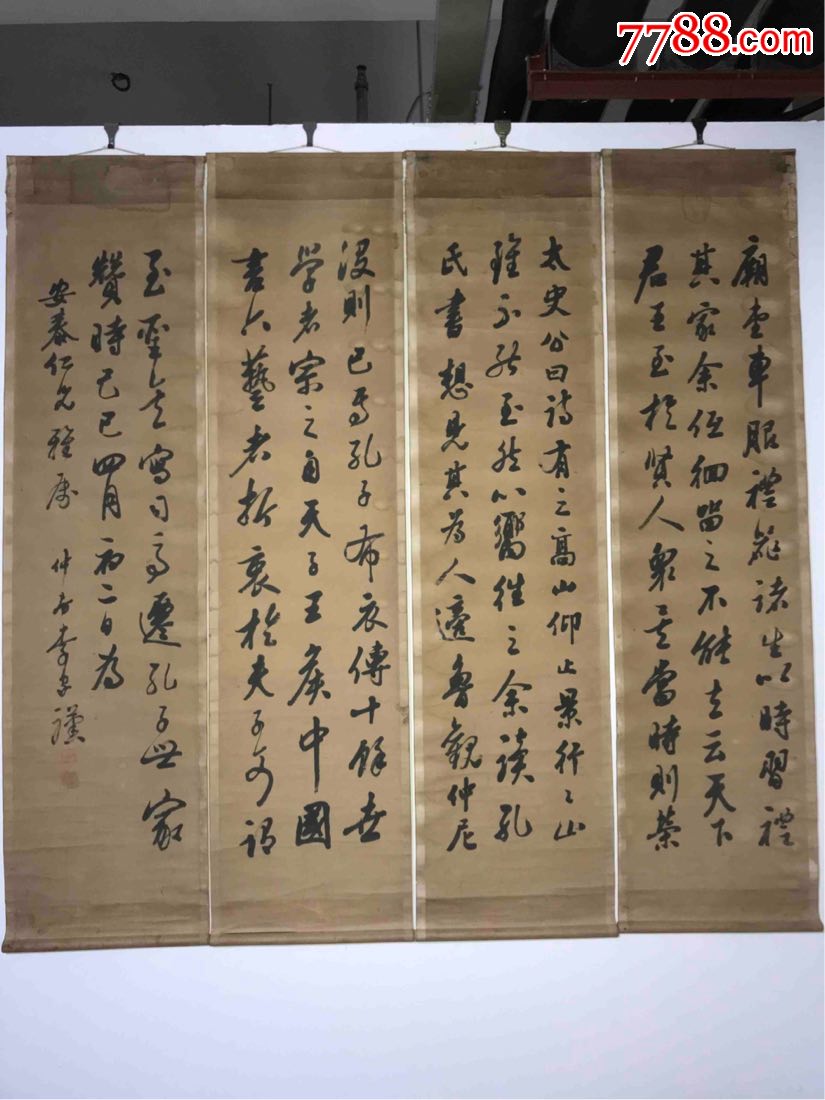 7788.com
廟堂車服禮器諸生以時習禮
其家余低徊留之不能去云天下
君王至於賢人衆矣當時則榮
太史公曰詩有之高山仰止景行々止
雖不能至然心嚮往之余讀孔
氏書想見其為人適魯觀仲尼
沒則已焉孔子布衣傳十餘世
學者宗之自天子王侯中國
言六藝者折衷於夫子可謂
至聖矣寫司馬遷孔子世家
贊時己巳四月初二日為
安泰仁兄雅屬 仲 李